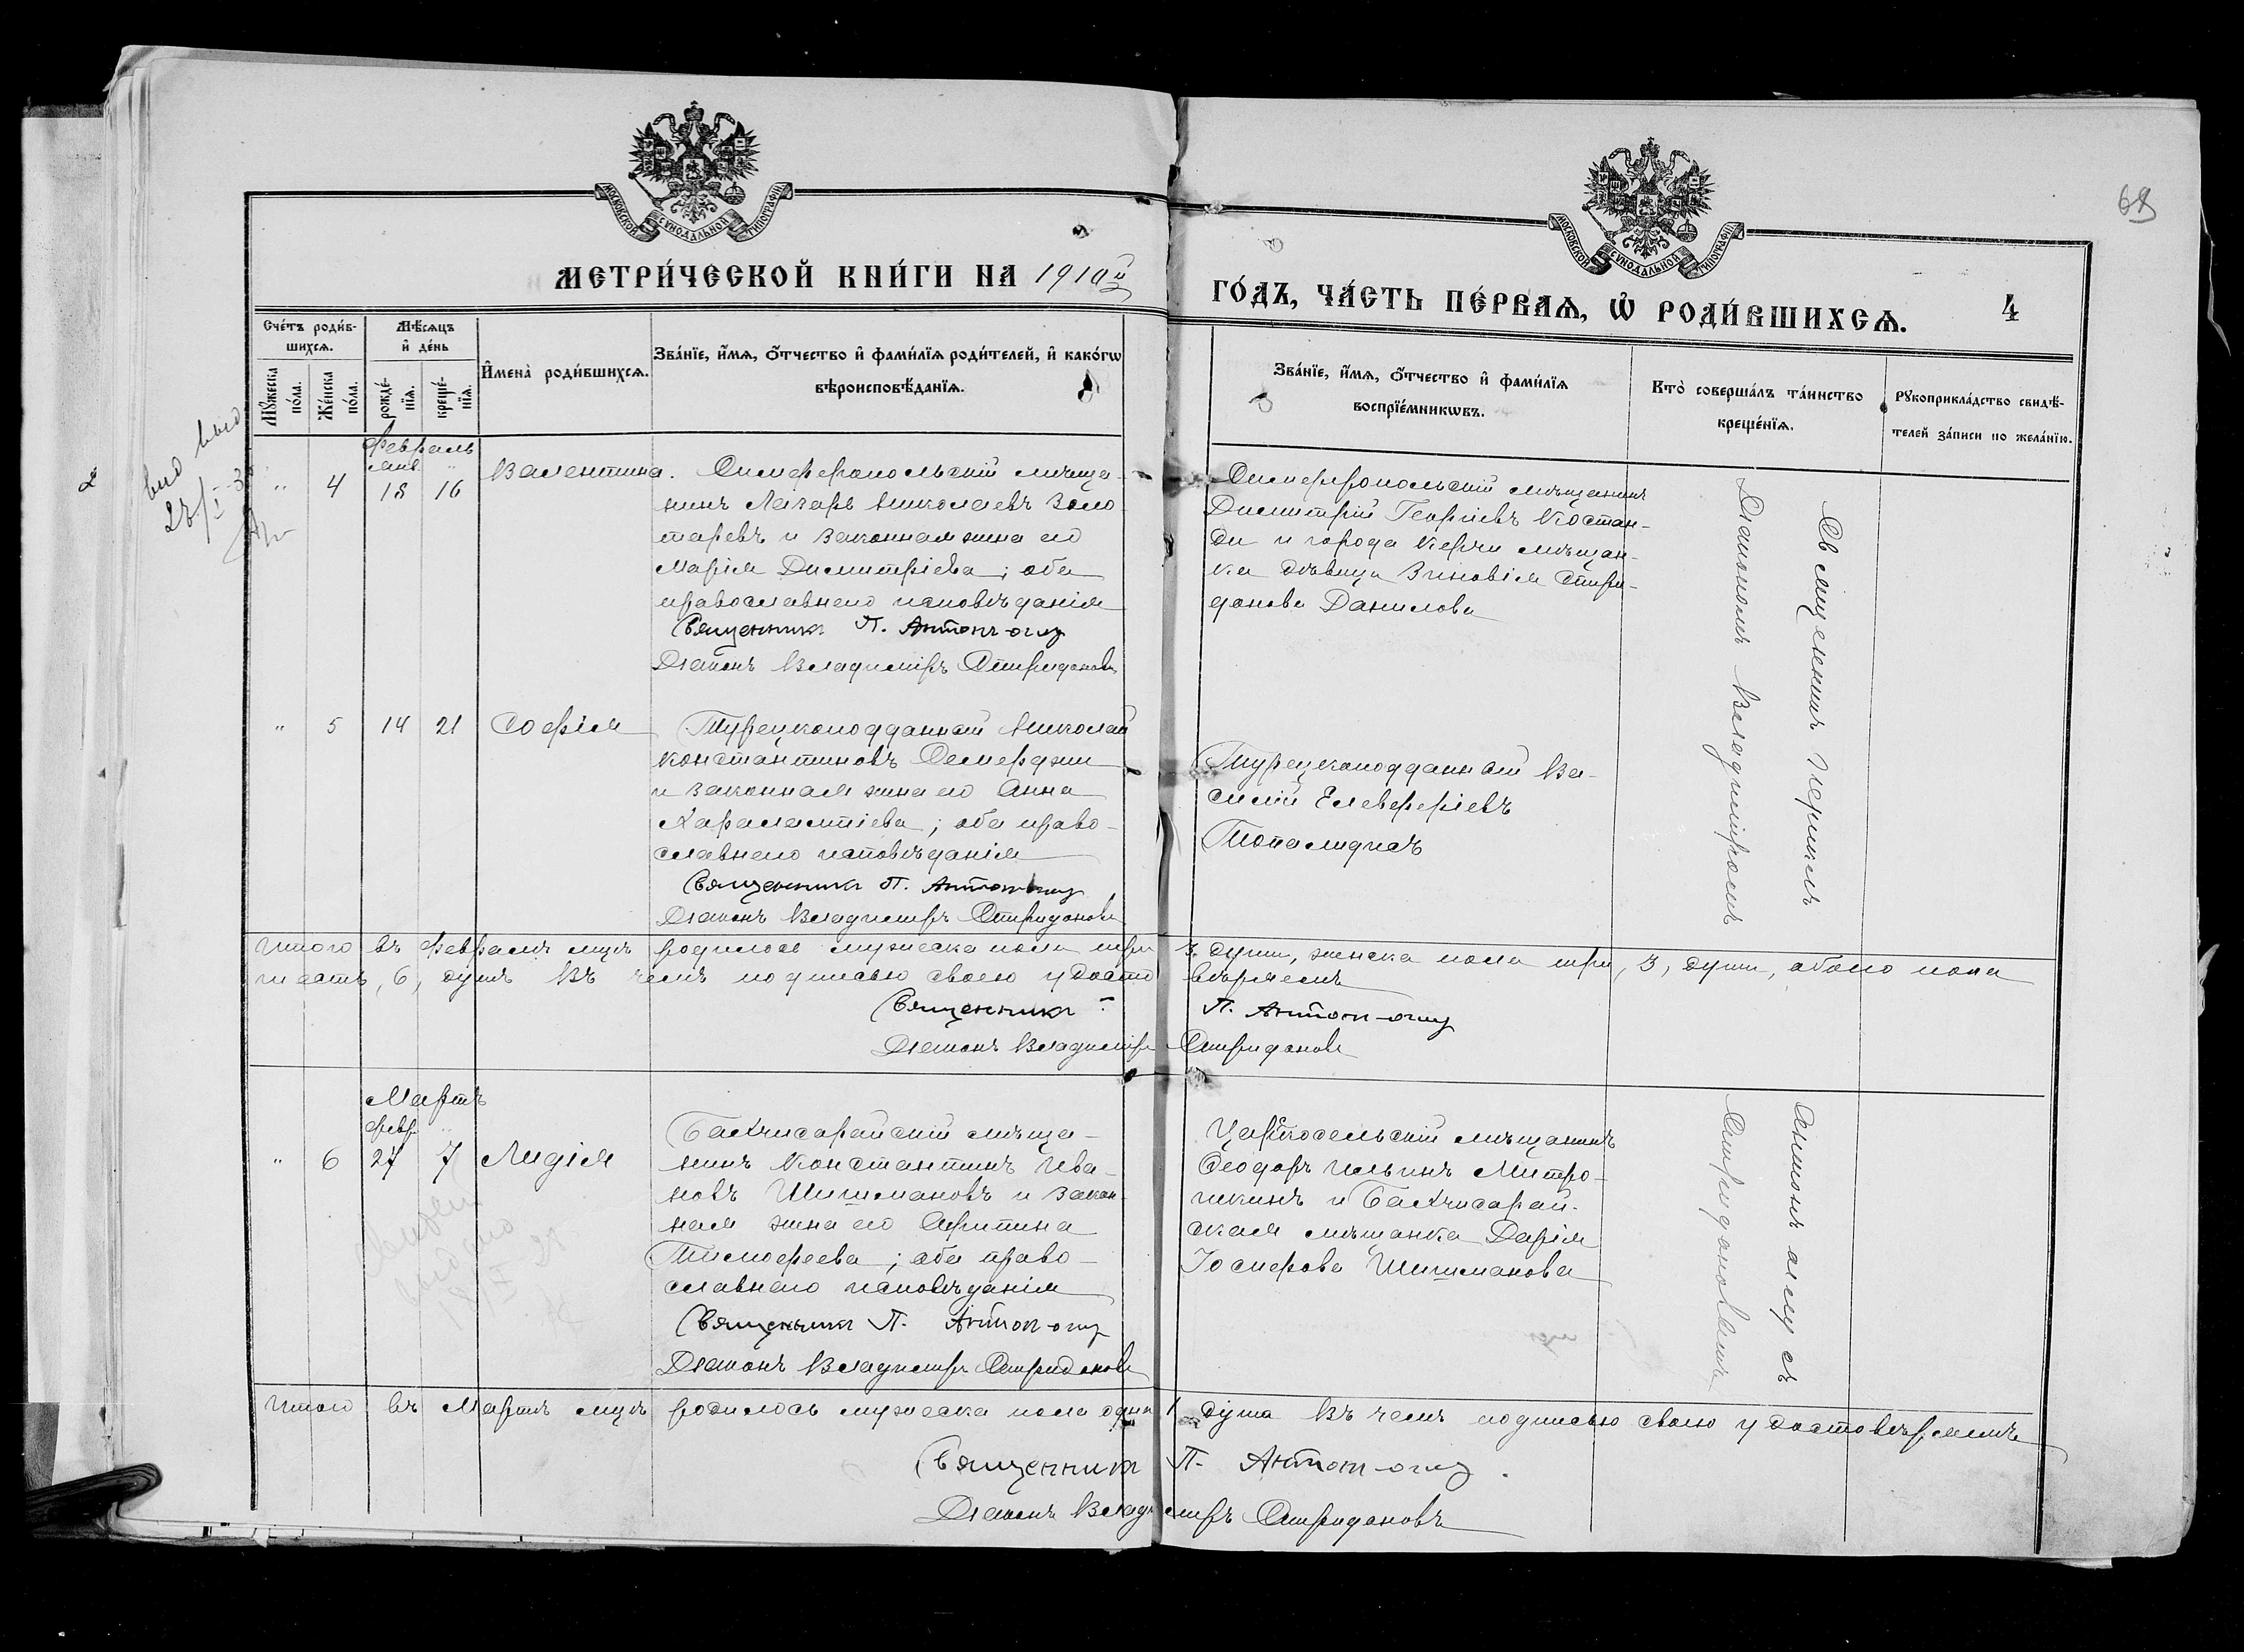 68
МОСКОВСКОЙ СѴНОДАЛЬНОЙ ТИПОГРАФІИ
МОСКОВСКОЙ СѴНОДАЛЬНОЙ ТИПОГРАФІИ
МЕТРИ́ЧЕСКОЙ КНИ́ГИ НА 1910й
ГО́ДЪ, ЧА́СТЬ ПЕ́РВАѦ, Ѡ҆ РОДИ́ВШИХСѦ.
4
Сче́тъ роди́в-
шихсѧ.
Мѣ́сѧцъ
и҆ де́нь
И҆мена̀ роди́вшихсѧ.
Зва́нїе, и҆́мѧ, ѻ҆́тчество и҆ фами́лїѧ роди́телей, и҆ како́гѡ
вѣроисповѣ́данїѧ.
Мꙋ́жеска
по́ла.
Же́нска
по́ла.
рожде́-
нїѧ.
креще́-
нїѧ.
Зва́нїе, и҆́мѧ, ѻ҆́тчество и҆ фами́лїѧ
воспрїе́мникѡвъ.
Кто̀ соверша́лъ та́инство
креще́нїѧ.
Рꙋкоприкла́дство свидѣ́-
телей за́писи по жела́нїю.
Февраль
Янв. "
" 4 18 16 Валентина.
Симферопольскій мѣща-
нинъ Лазарь Николаевъ Золо
таревъ и законная жена его
Марія Димитріева; оба
православнаго исповѣданія
Священникъ П. Антон-оглу
Діаконъ Владиміръ Спиридоновъ
Симферопольскій мѣщанинъ
Димитрій Георгіевъ Костан-
ди и города Керчи мѣщан-
ка дѣвица Зиновія Спири-
донова Данилова
Священникъ Периклъ
Діакономъ Владиміромъ
" 5 14 21 Софія
Турецкоподданный Николай
Константиновъ Демерджи
и законная жена его Анна
Харалампіева; оба право-
славнаго исповѣданія
Священникъ П. Антон-оглу
Діаконъ Владиміръ Спиридоновъ
Турецкоподданный Ва-
силій Елевферіевъ
Топалидисъ
Итого въ Февралѣ мцѣ родилось мужеска пола три 3, души, женска пола три, 3, души, обоего пола
шесть, 6, душъ Въ чемъ подписью своею удостовѣряемъ
Священникъ П. Антон-оглу
Діаконъ Владиміръ Спиридоновъ
Мартъ
Февр. "
" 6 27 7 Лидія
Бахчисарайскій мѣща-
нинъ Константинъ Ива-
новъ Шишмановъ и закон-
ная жена его
Тимофеева; оба право-
славнаго исповѣданія
Священникъ П. Антон-оглу
Діаконъ Владиміръ Спиридоновъ
Царскосельскій мѣщанинъ
Ѳеодоръ Ильинъ Митро-
шкинъ и Бахчисарай-
ская мѣщанка Дарія
Іосифова Шишманова
Антонъ оглу съ
Спиридоновымъ
Итого въ Мартѣ мцѣ родилось мужеска пола одна 1 душа Въ чемъ подписью своею удостовѣряемъ
Священникъ П. Антон-оглу.
Діаконъ Владиміръ Спиридоновъ